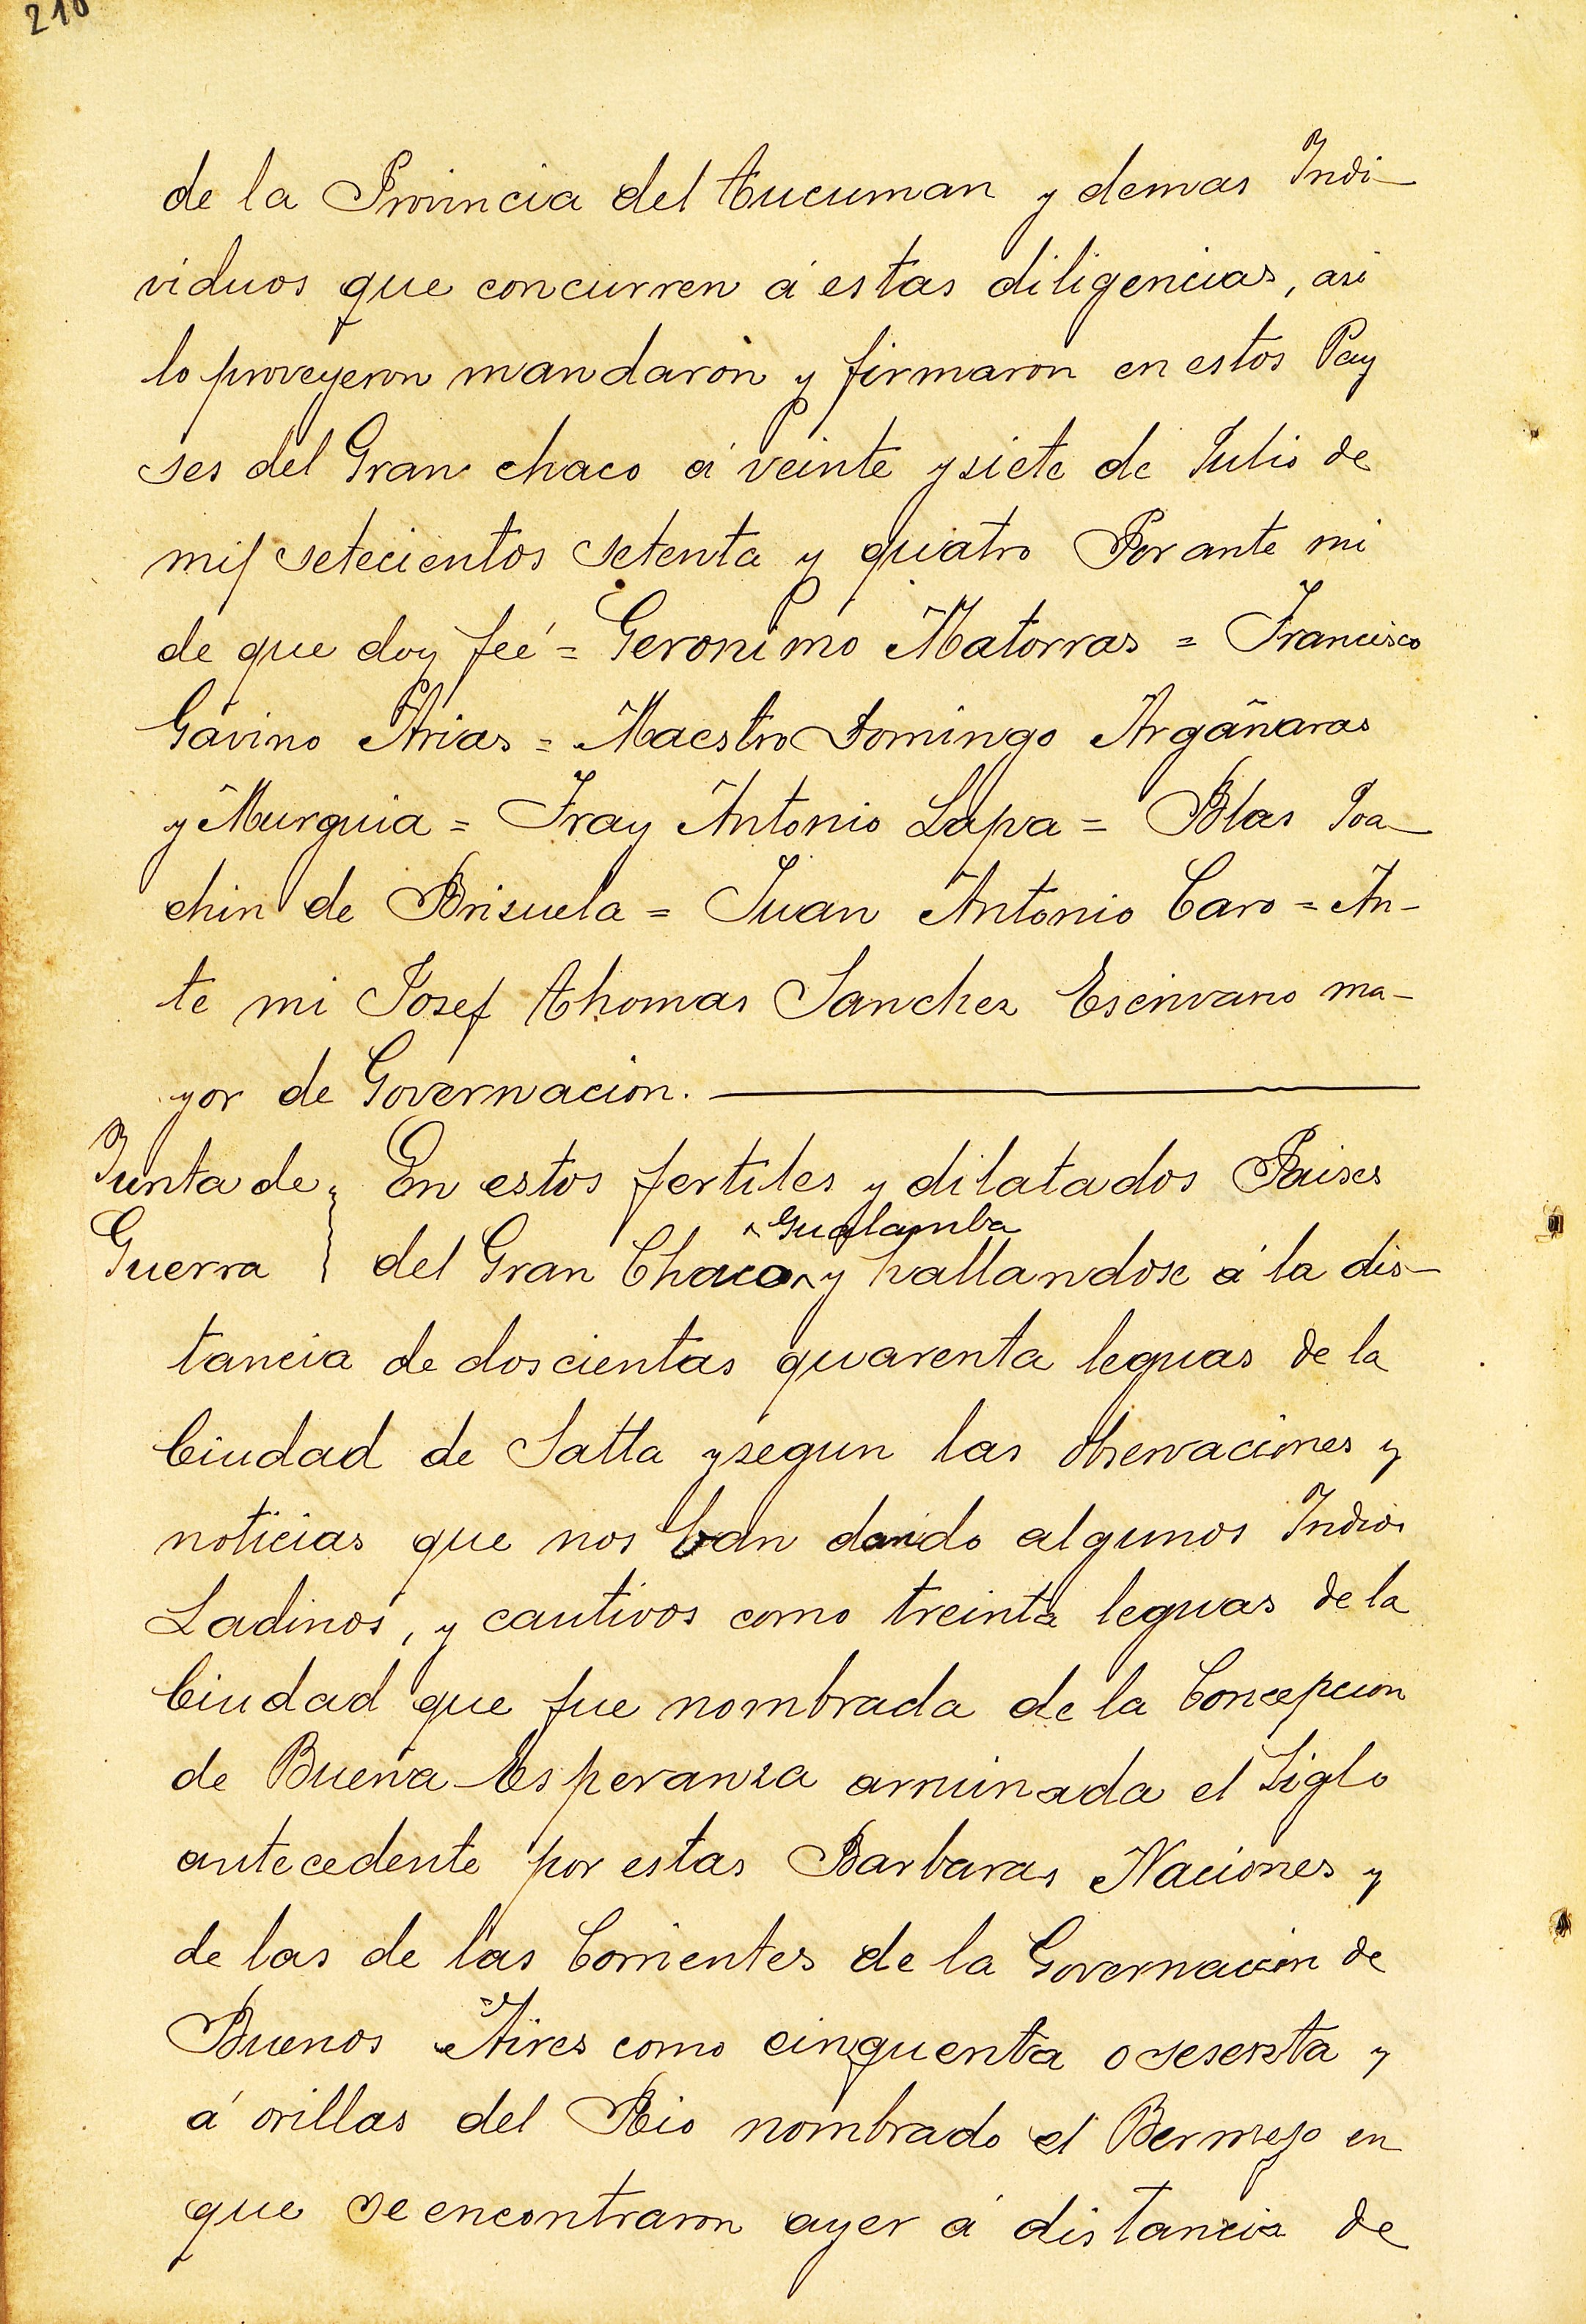 de la Provincia del Tucuman y demas Indi-
viduos que concurren á estas diligencias, asi
lo proveyeron mandaron y firmaron en estos Pay
ses del Gran chaco á veinte y siete de Julio de
mil setecientos setenta y quatro Por ante mi
de que doy feé = Geronimo Matorras = Francisco
Gavino Arias = Maestro Domingo Argañaras
y Murguia = Fray Antonio Lapa = Blas Joa-
chin de Brisuela = Juan Antonio Caro = An-
te mi Josef Thomas Sanchez Escrivano ma-
yor de Governacion.
Junta de En estos fertiles y dilatados Paises
Gualamba
Guerra del Gran Chaco y hallandose á la dis-
tancia de doscientas quarenta leguas de la
Ciudad de Salta y segun las observaciones y
noticias que nos van dando algunos Indios
Ladinos, y cautivos como treinta leguas de la
Ciudad que fue nombrada de la Concepcion
de Buena Esperanza arruinada el Siglo
antecedente por estas Barbaras Naciones y
de las de las Corrientes de la Governacion de
Buenos Aires como cinquenta o sesenta y
á orillas del Rio nombrado el Bermejo en
que se encontraron ayer á distancia de